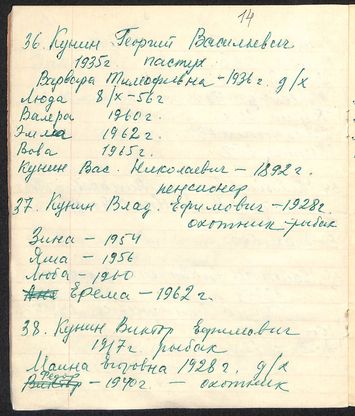 14
36. Кунин Георгий Васильевич
1935г. пастух
Варвара Тимофеевна - 1936г. д/х
Люда 8/X-56г
Валера 1960г.
Эмма 1962г.
Вова 1965г.
Кунин Вас. Николаевич - 1892г.
пенсионер
37. Кунин Влад. Ефимович - 1928г.
охотник-рыбак
Зина - 1954
Яша - 1956
Люба - 1960
Ерёма - 1962г.
38. Кунин Виктор Ефимович
1917г. рыбак
Егоровна 1928г. д/х
Федор
- 1940г. - охотник